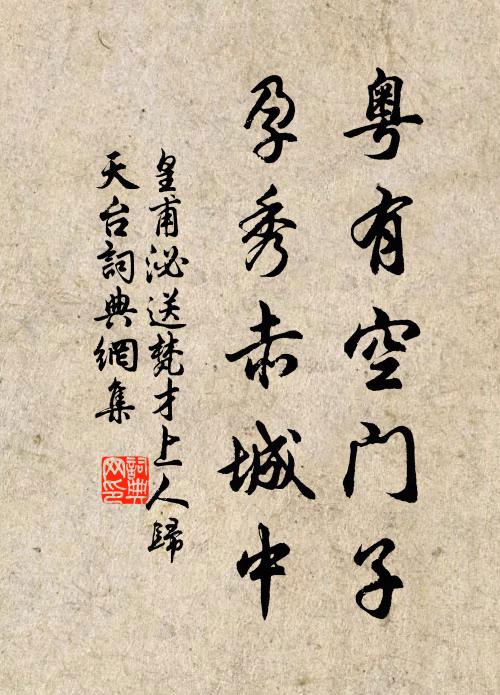 粤有空門子
孕秀赤城中
皇甫泌送梵才上人歸
天台詞典網集
詞典
网印